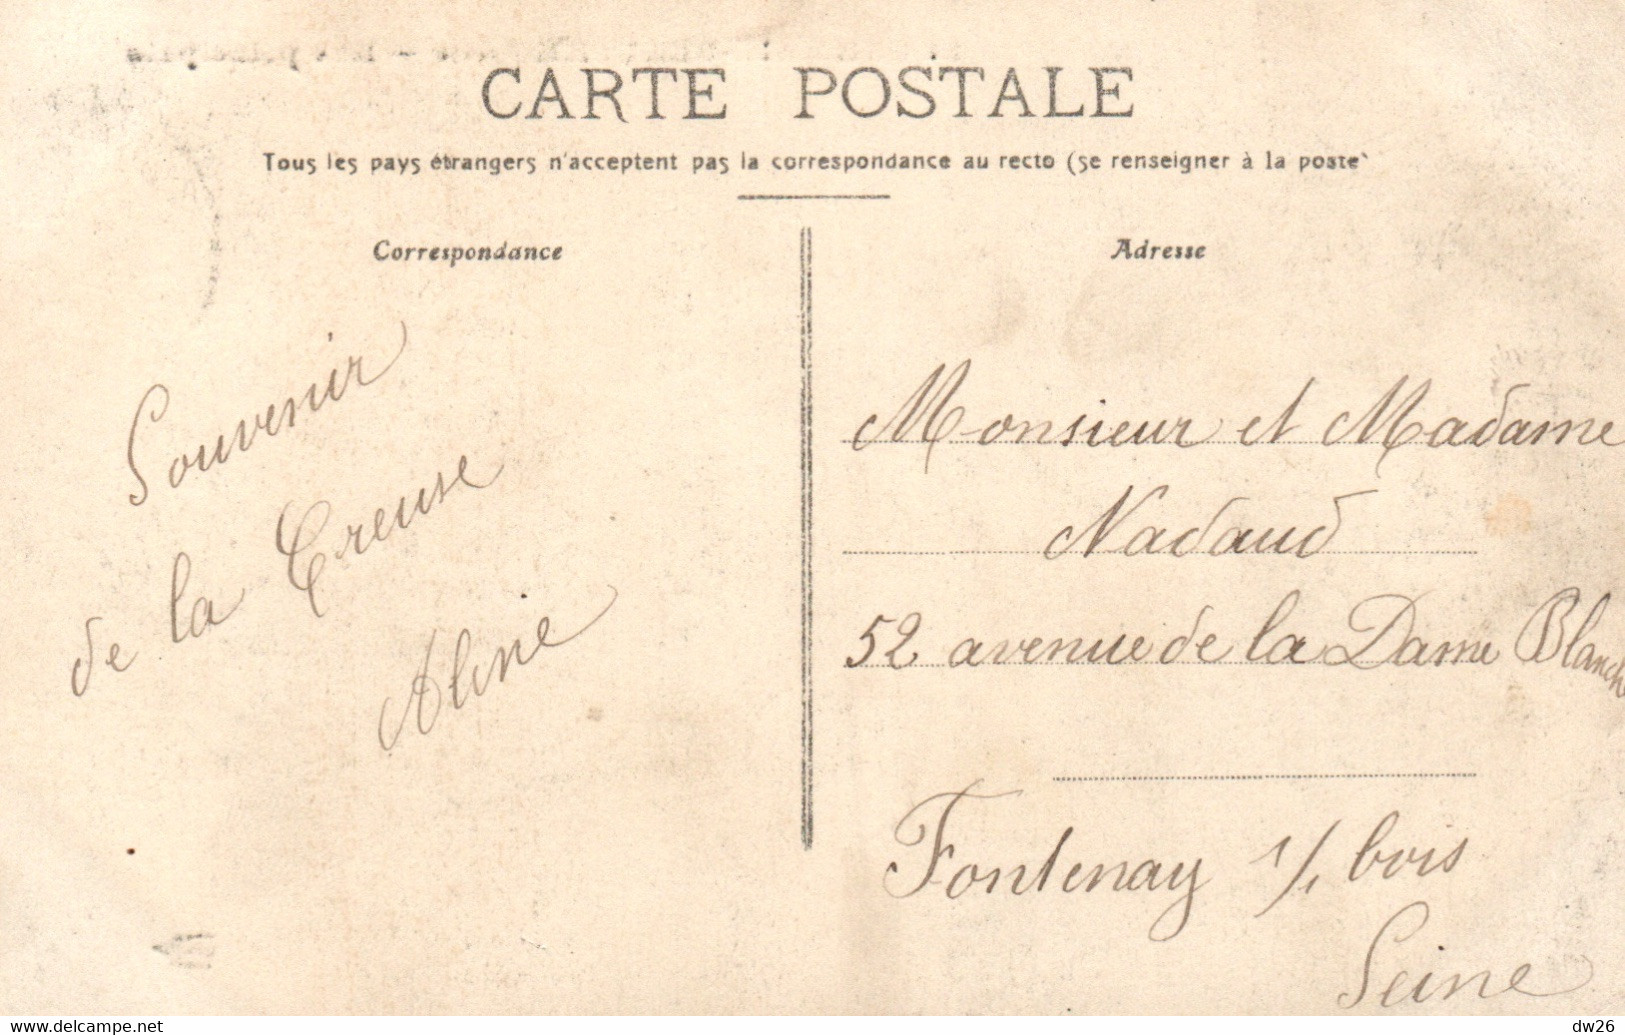 CARTE POSTALE
Tous les pays étrangers n'acceptent pas la correspondance au recto (se renseigner à la poste)
Correspondance
Souvenir
de la Creuse
Aline
Adresse
Monsieur et Madame
Nadaud
52 avenue de la Dame Blanch
Fontenay s/s bois
Seine
www.delcampe.net
dw26